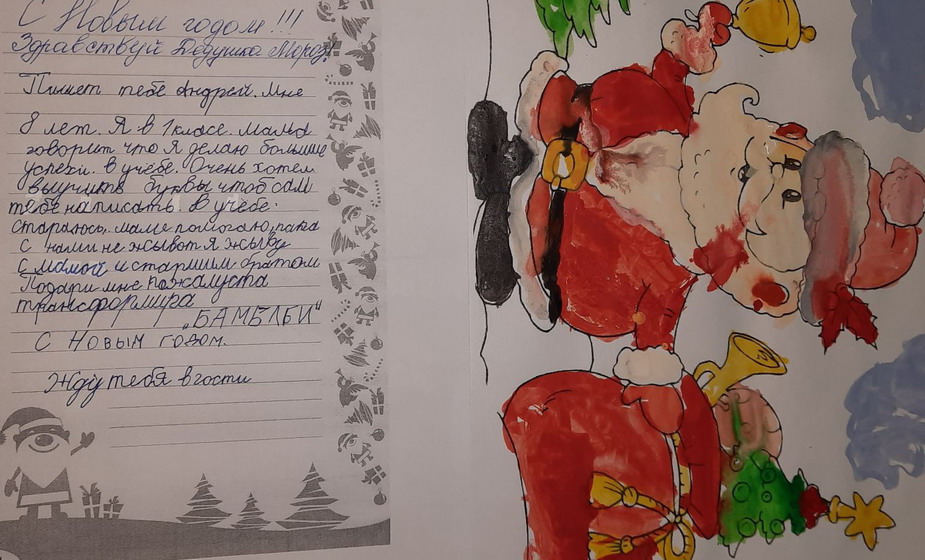 С Новым годом!!!
Здравствуй Дедушка Мороз!
Пишет тебе Андрей. Мне
8 лет. Я в 1 класе. мама
говорит что я делаю большие
успехи. в учёбе. Очень хотел
выучить буквы чтоб сам
тебе написать. В учёбе.
стараюсь, маме помогаю, папа
с нами не жывот я жыву
с мамой и старшим братом
Подари мне пожалуста
трансформира
„БАМБЛБИ"
С Новым годом.
Жду тебя в гости